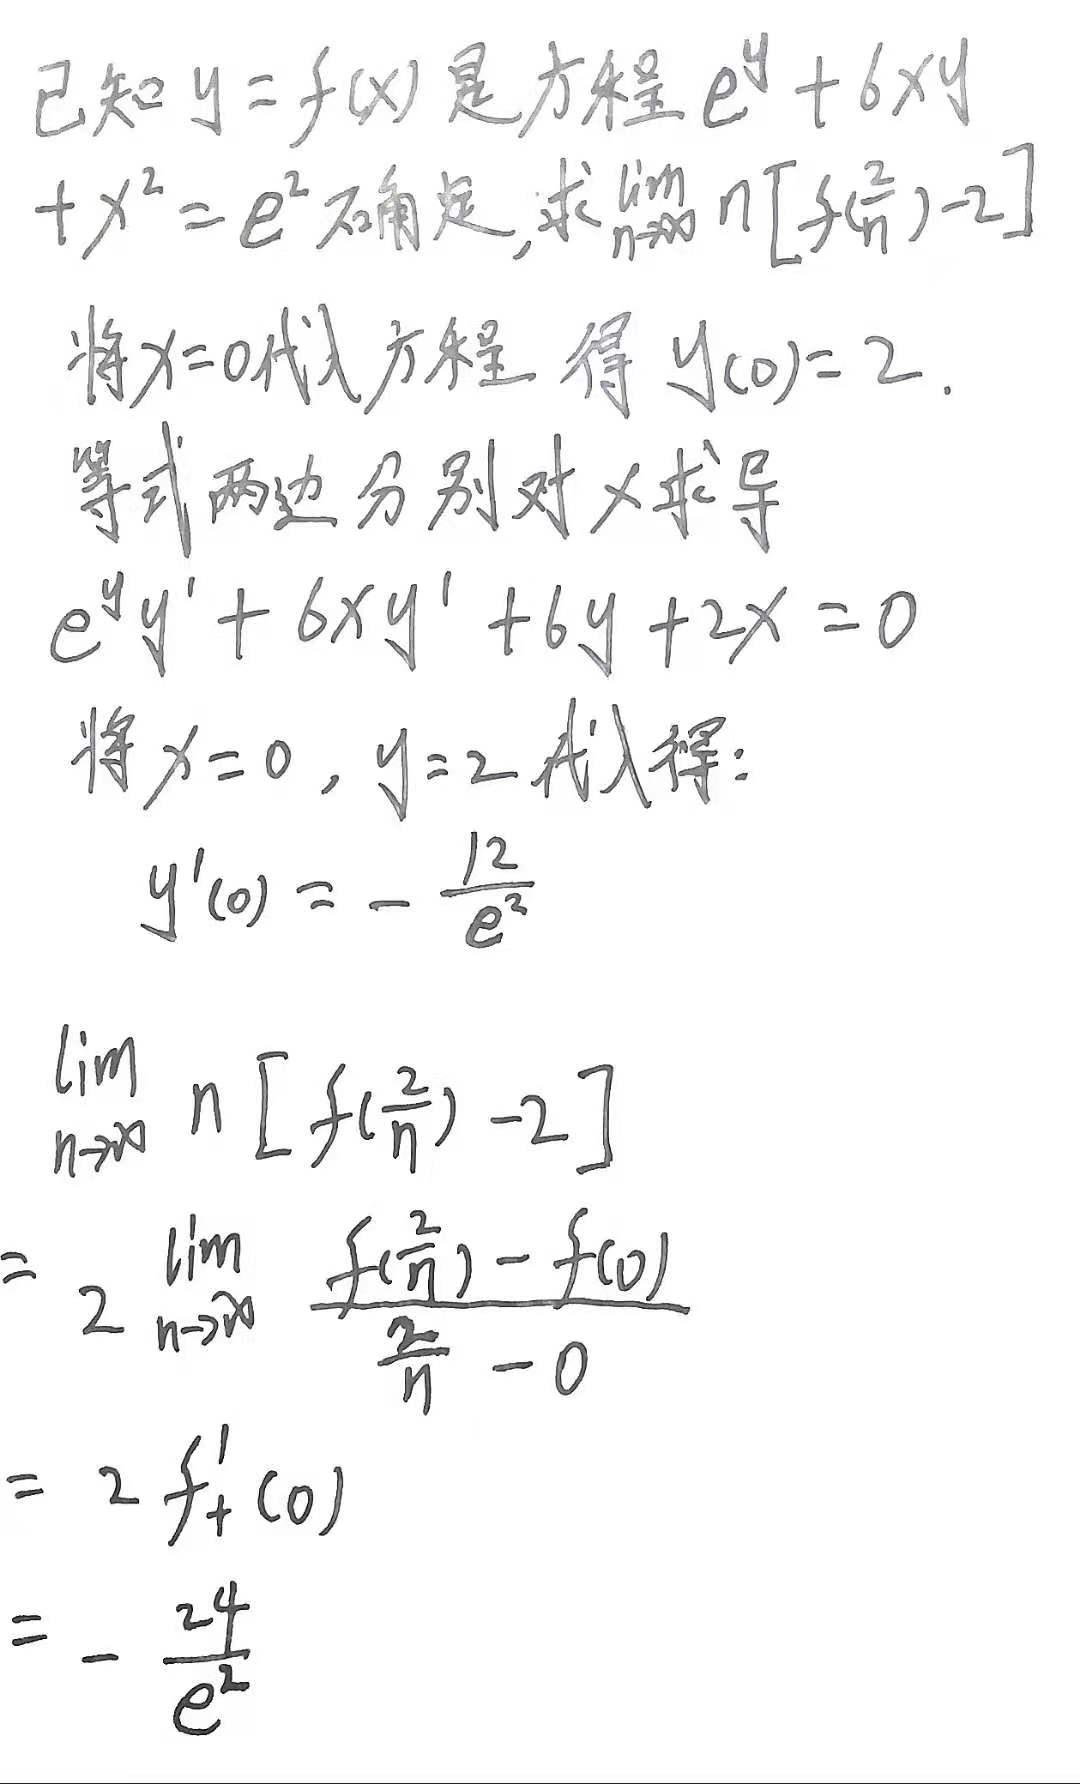 已知 y = f(x) 是方程 e^y + 6xy
+ x² = e² 确定, 求 lim n→∞ n[f(2/n) - 2]
将 x=0 代入方程 得 y(0) = 2.
等式两边分别对 x 求导
e^y y' + 6xy' + 6y + 2x = 0
将 x = 0, y = 2 代入得:
y'(0) = - 12/e²
lim n→∞ n [f(2/n) - 2]
= 2 lim n→∞ (f(2/n) - f(0))/(2/n - 0)
= 2 f'₊(0)
= - 24/e²